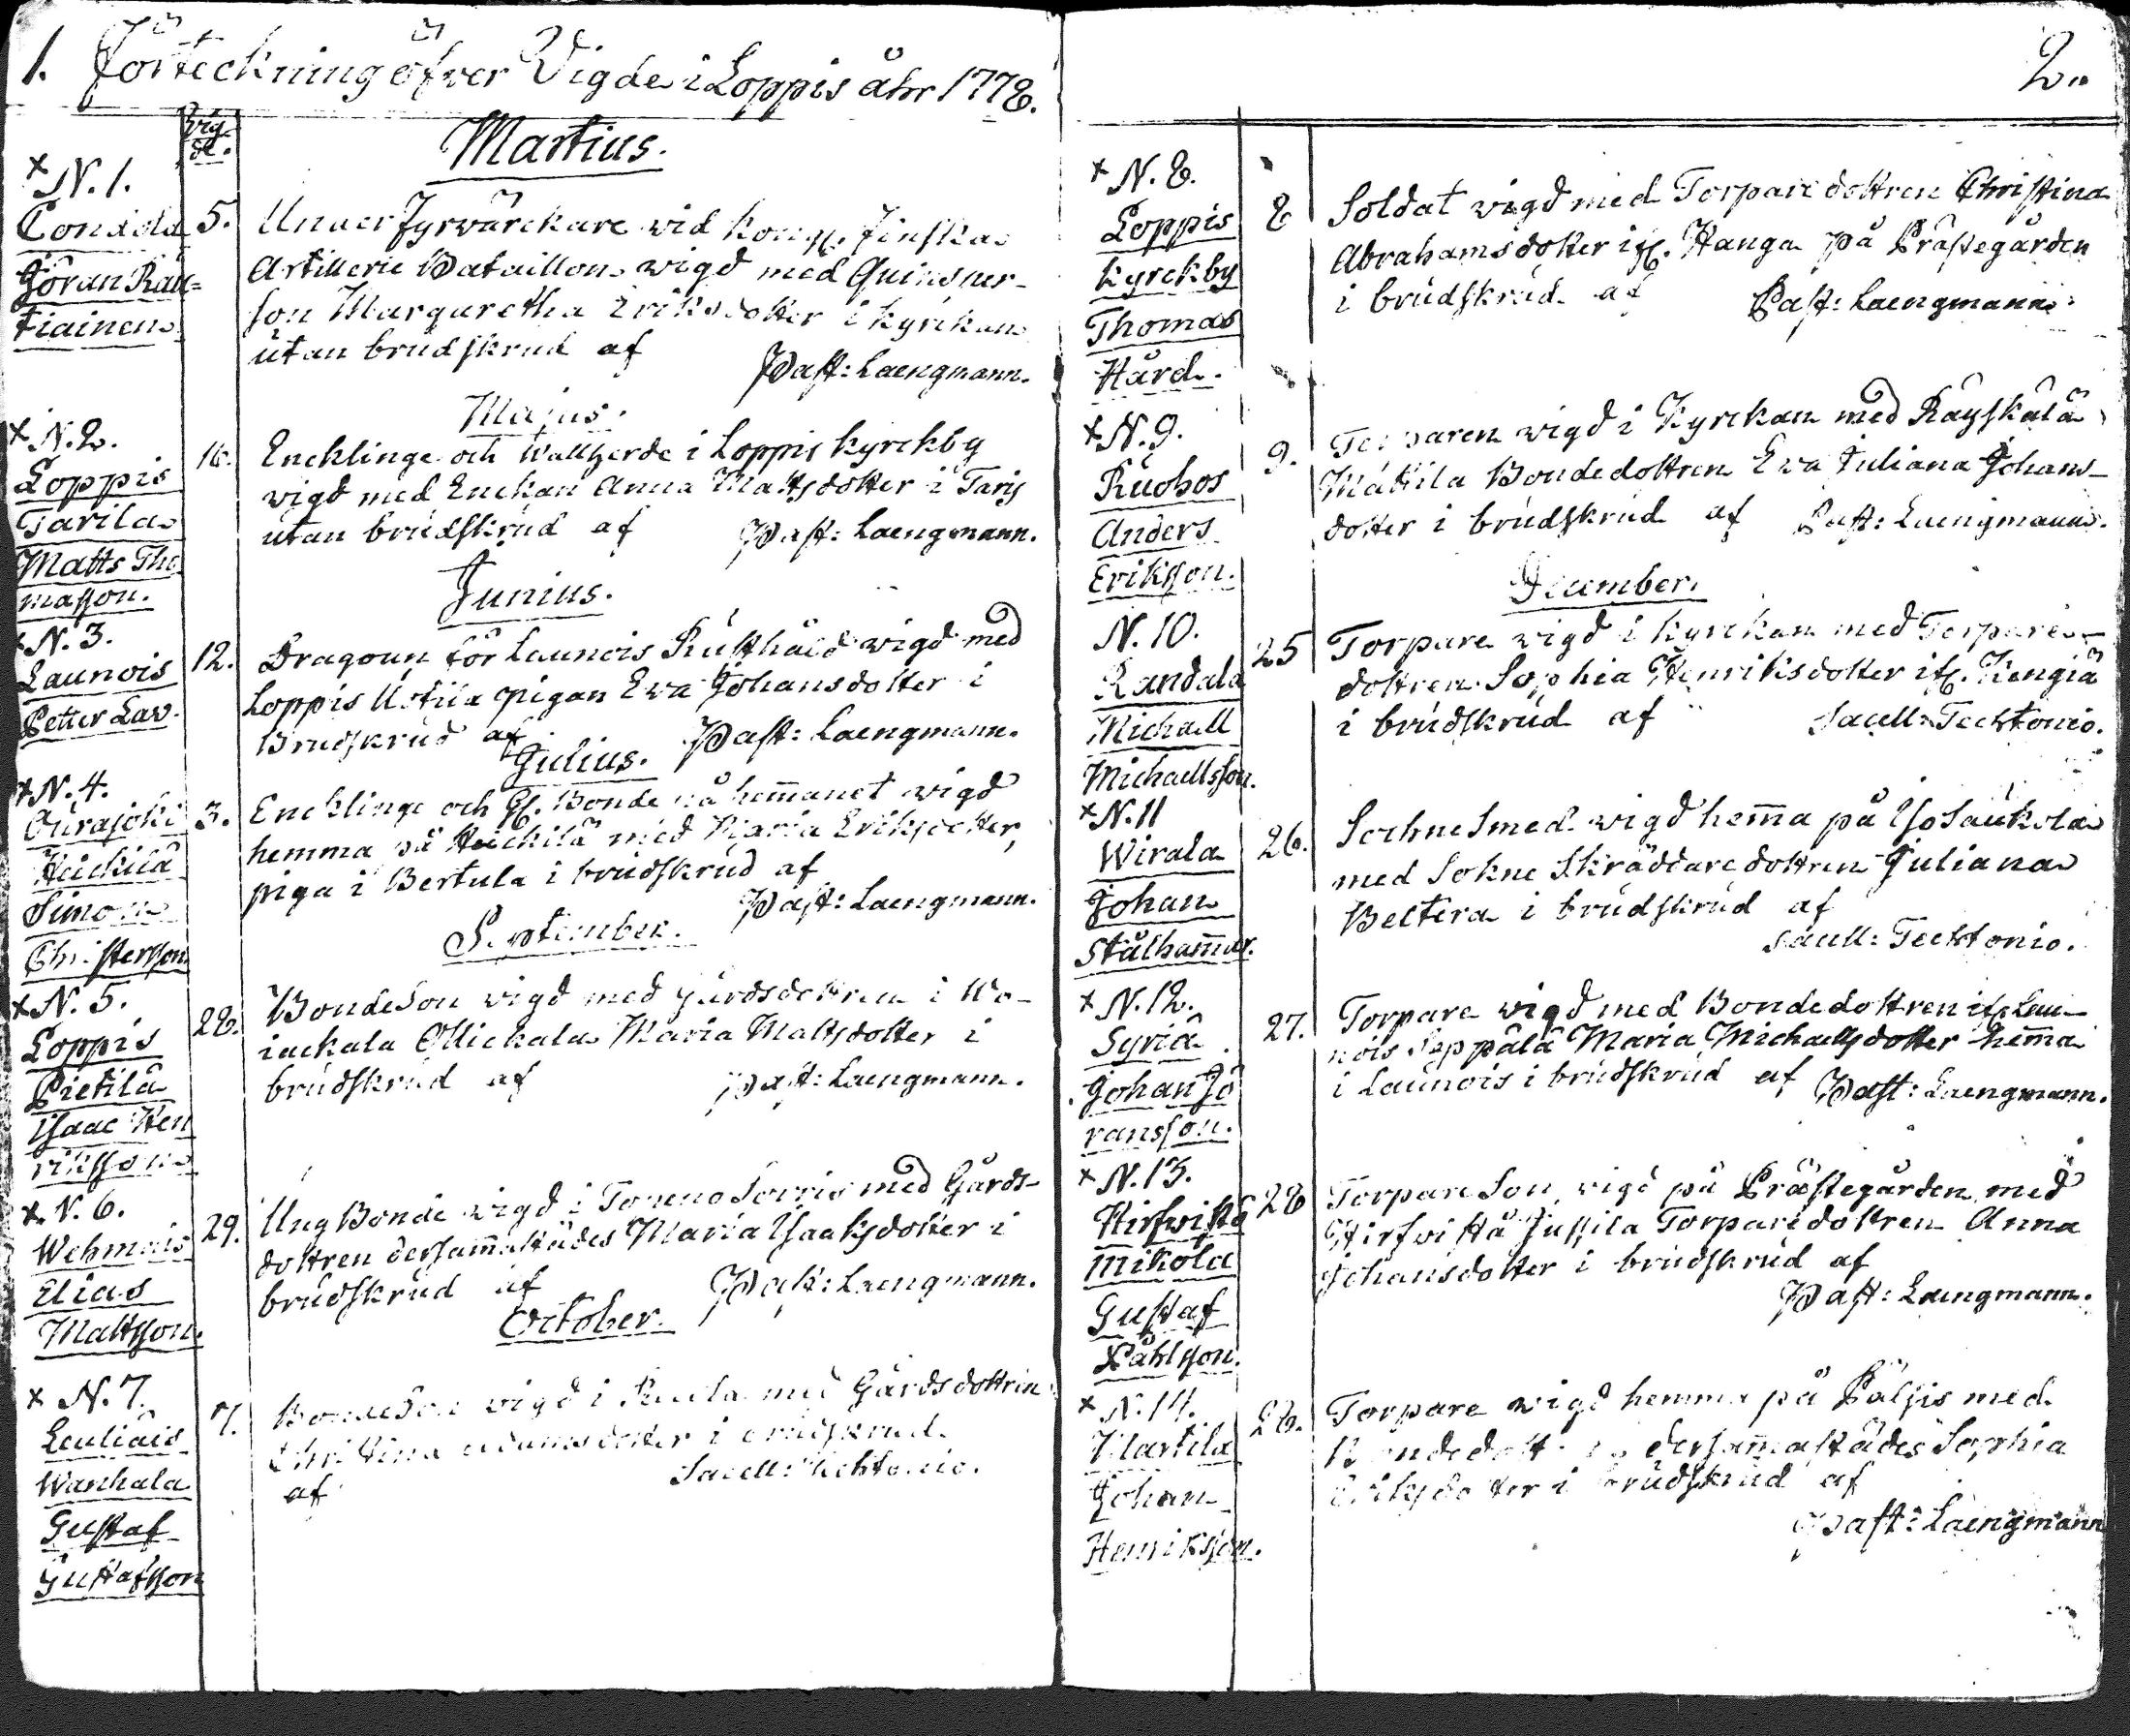 1. Förteckning öfver Vigde i Loppis åhr 1778.
vig-
de.
Martius.
× N. 1.
Tondola
Göran Rau=
tiainen
5.
Under fyrwärckare wid Kongl. Finska
Artillerie Bataillon wigd med Qwinsper-
son Margaretha Eriksdotter i kyrckan
utan brudskrud af
Past: Laengmann.
Majus.
× N. 2.
Loppis
Tarila
Matts Tho
masson.
16.
Encklinge och Wallherde i Loppis kyrckby
wigd med Enckan Anna Mattsdotter i Taris
utan brudskrud af
Past: Laengmann.
Junius.
× N. 3.
Launois
Petter Lax.
12.
Dragoun för Launois Rusthåld wigd med
Loppis Uotila pigan Ewa Johansdotter i
Brudskrud af
Past: Laengmann.
Julius.
× N. 4.
Ourajoki
Heickilä
Simon
Christersson
3.
Encklinge och Bonde på hemanet wigd
hemma på Heickilä med Maria Eriksdotter,
piga i Bertula i brudskrud af
Past: Laengmann.
September.
× N. 5.
Loppis
Pietilä
Isaac Hen
riksson
28.
Bondeson wigd med gårdsdottren i Wo-
iackala Ollickala Maria Mattsdotter i
brudskrud af
Past: Laengmann.
× N. 6.
Wehmais
Elias
Mattsson.
29.
Ung Bonde wigd i Topeno Sorris med Gårds-
dottren dersammastädes Maria Isaaksdotter i
brudskrud af
Past: Laengmann.
October.
× N. 7.
Leuliäis
Wanhala
Gustaf
Gustafsson
7.
Bondeson wigd i med Gårdsdottren
Christina Adamsdotter i brudskrud
af
Sacell: Techtonio.
2.
× N. 8.
Loppis
kyrckby
Thomas
Hård.
8
Soldat wigd med Torpare dottren Christina
Abrahamsdotter ifr. Hanga på Prästegården
i brudskrud af
Past: Laengmann.
× N. 9.
Ruohos
Anders
Eriksson.
9.
Torparen wigd i Kyrckan med Räyskälä
Mattila Bondedottren Ewa Juliana Johans-
dotter i brudskrud af
Past: Laengmann.
December.
N. 10.
Randala
Michael
Michaelsson.
25
Torpare wigd i kyrckan med Torpare-
dottren Sophia Henriksdotter ifr. Kengiä
i brudskrud af
Sacell: Techtonio.
× N. 11
Wirala
Johan
Stålhamar.
26.
Sochne Smed wigd hema på Iso Saukola
med Sokne Skräddare dottren Juliana
Beltera i brudskrud af
Sacell: Techtonio.
× N. 12.
Syriä
Johan Jö
ransson.
27.
Torpare wigd med Bondedottren ifr. Lau-
nois Seppälä Maria Michaelsdotter hema
i Launois i brudskrud af
Past: Laengmann.
× N. 13.
Hirfwistö
Mikola
Gustaf
Påhlsson.
28
Torpare Son wigd på Prästegården med
Hirfwistä Jussila Torpare dottren Anna
Johansdotter i brudskrud af
Past: Laengmann.
× N. 14.
Martila
Johan
Henriksson.
28.
Torpare wigd hemma på Päljis med
Bondedottren dersammastädes Sophia
Eriksdotter i brudskrud af
Past: Laengmann